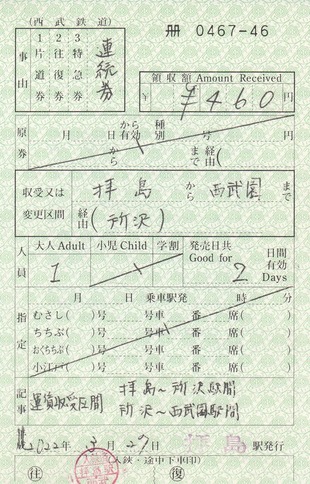 (西武鉄道)
冊 0467-46
事由
1 片道券
2 往復券
3 特急券
連続券
領収額 Amount Received
¥ ¥460 円
原券
月 日から有効 種別 号 円
から まで 経由(
収受又は変更区間
拝島 から 西武園 まで
経由(所沢)
人員
大人Adult 小児Child 学割 発売日共 Good for 日間有効 Days
1 2
指定
月 日 乗車駅発 時 分
むさし( )号 号車 番 席( )
ちちぶ( )号 号車 番 席( )
おくちちぶ( )号 号車 番 席( )
小江戸( )号 号車 番 席( )
記事
運賃収受区間 拝島〜所沢駅間
所沢〜西武園駅間
2022年 3月27日 拝島 駅発行
(入鋏・途中下車印)
往 復